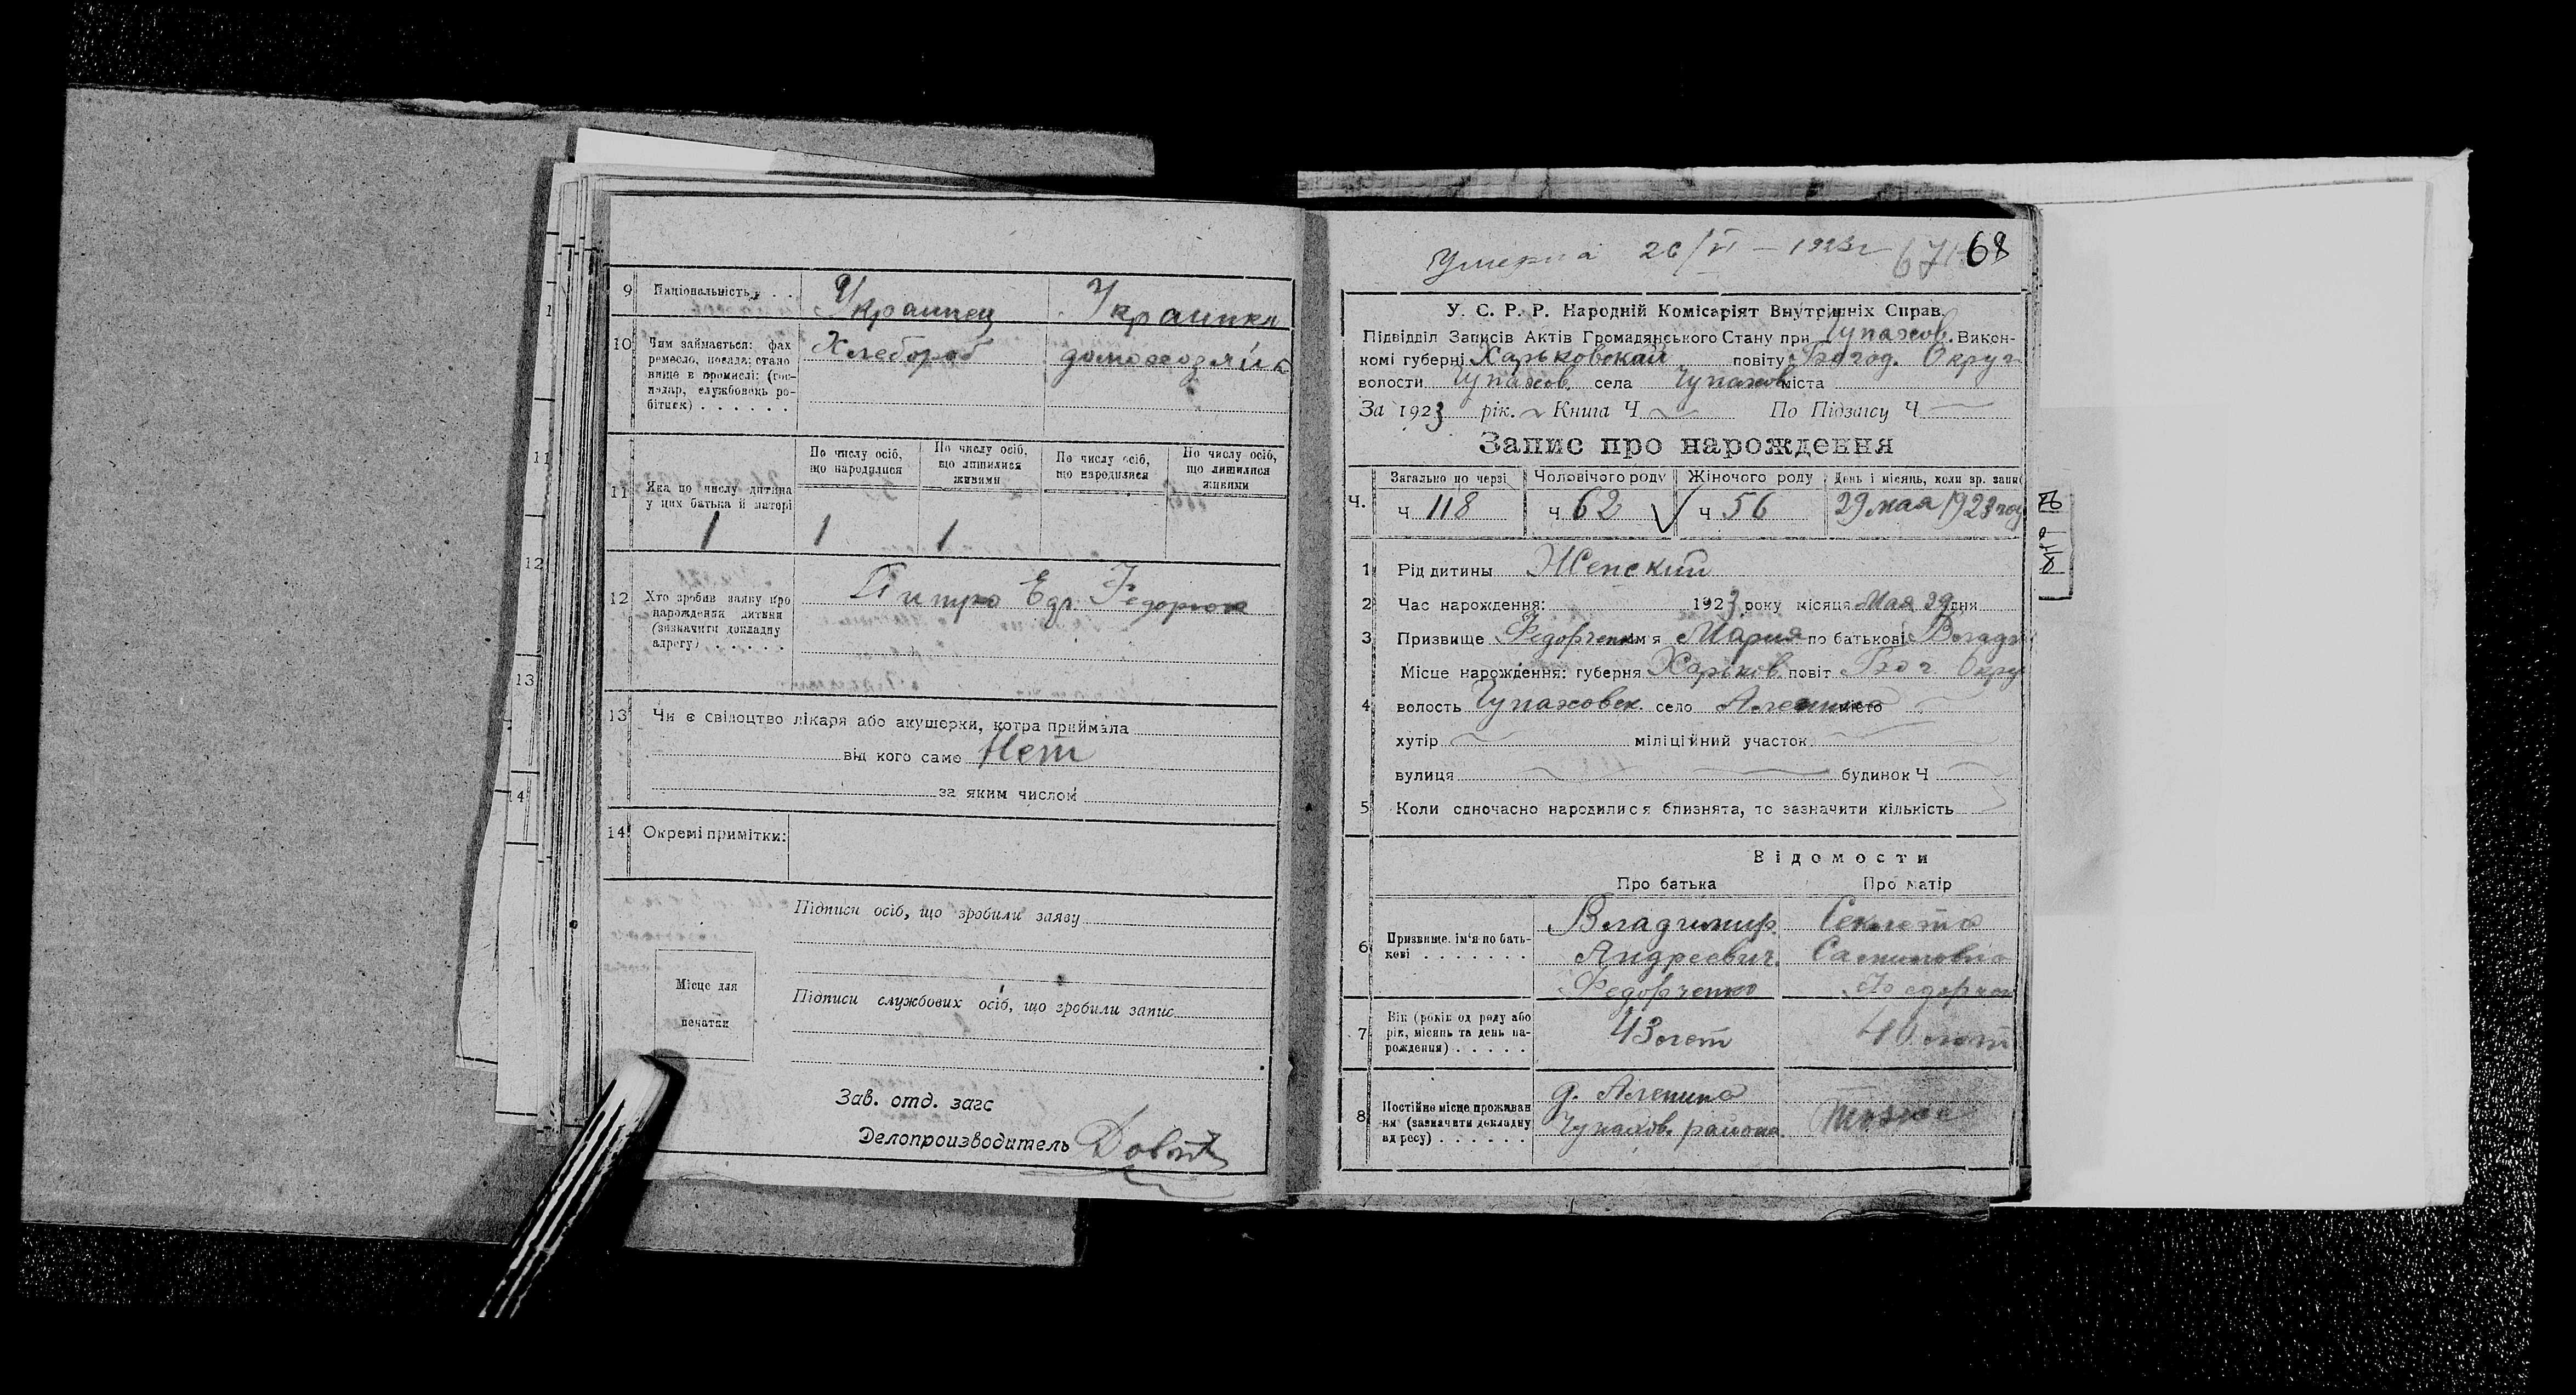 9 Національність . . . Украинец Украинка
10 Чим займається: фах
ремесло, посада; стано
вище в промислі: (гос-
подар, службовець ро-
бітник) . . . . . .
Хлебороб домохозяйк
11 Яка по числу дитина
у цих батька й матері
1
По числу осіб,
що народилися
1
По числу осіб,
що лишилися
живими
1
По числу осіб,
що народилися
По числу осіб,
що лишилися
живими
12 Хто зробив заяву про
нарождення дитини
(зазначити докладну
адресу) . . . . . .
13 Чи є свідоцтво лікаря або акушерки, котра приймала
від кого саме Нет
за яким числом
14 Окремі примітки:
Підписи осіб, що зробили заяву
Місце для
печатки
Підписи службових осіб, що зробили запис
Зав. отд. загс
Делопроизводитель
11
12
13
14
Умерла 26/VI – 1923г 67 68
У. С. Р. Р. Народній Комісаріят Внутрішніх Справ.
Підвідділ Записів Актів Громадянського Стану при Чупахов. Викон-
комі губерні Харьковской повіту Богод. Округ
волости Чупахов. села Чупахов міста
За 1923 рік. Книга Ч По Підзапису Ч
Запис про нарождення
Ч.
Загально по черзі
ч 118
Чоловічого роду
ч 62
Жіночого роду
ч 56
День і місяць, коли зр. запис
29 мая 1923 год
1 Рід дитины Женский
2 Час нарождення: 1923 року місяця Мая 29 дня
3 Призвище Федорченко им'я Мария по батькові Владим
Місце нарождення: губерня Харьков. повіт Бог Окру
4 волость Чупаховск. село Алешино місто
хутір міліційний участок
вулиця будинок Ч
5 Коли одночасно народилися близнята, то зазначити кількість
Відомости
Про батька Про матір
6 Призвище, ім'я по бать-
кові . . . . . . .
Владимир Секлета
Андреевич
Федорченко Федорчен
7 Вік (років од роду або
рік, місяць та день на-
рождення) . . . . .
43 лет 40 лет
8 Постійне місце проживан
ня (зазначити докладну
адресу) . . . . . .
д. Алешино
Чупахов. района
тоже